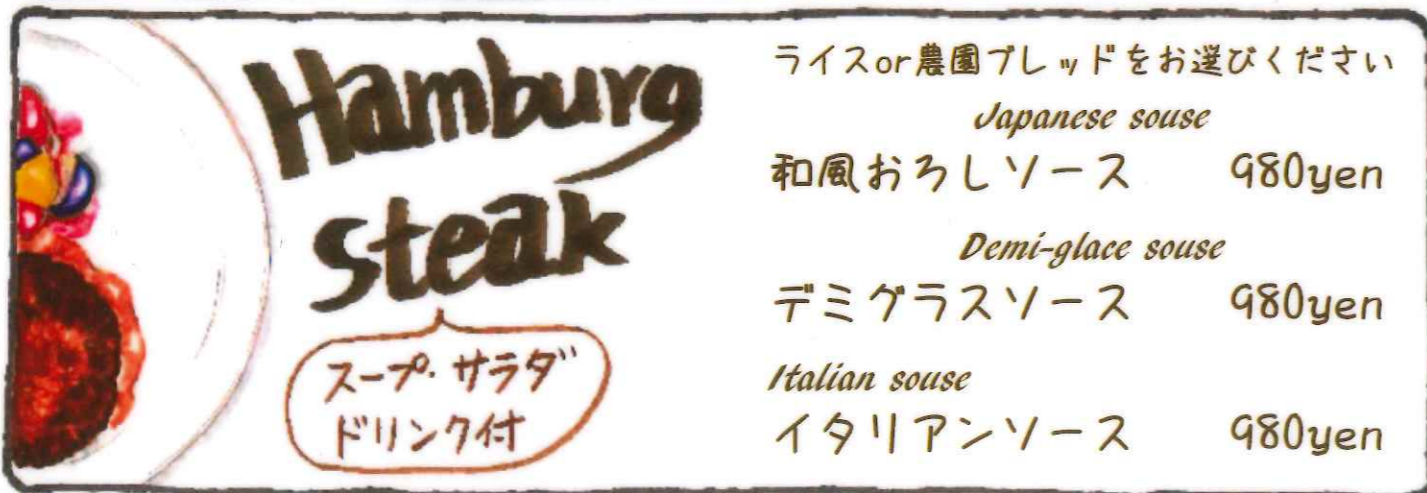 Hamburg
steak
スープ・サラダ
ドリンク付
ライスor農園ブレッドをお選びください
Japanese souse
和風おろしソース 980yen
Demi-glace souse
デミグラスソース 980yen
Italian souse
イタリアンソース 980yen